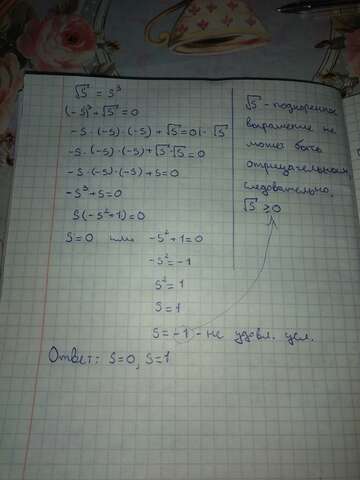 √S = S³
(-S)³ + √S = 0
-S · (-S) · (-S) + √S = 0 | · √S
-S · (-S) · (-S) + √S · √S = 0
-S · (-S) · (-S) + S = 0
-S³ + S = 0
S(-S² + 1) = 0
S = 0 или -S² + 1 = 0
-S² = -1
S² = 1
S = 1
S = -1 - не удовл. усл.
Ответ: S=0, S=1
√S - подкоренное
выражение не
может быть
отрицательным
следовательно,
√S ≥ 0